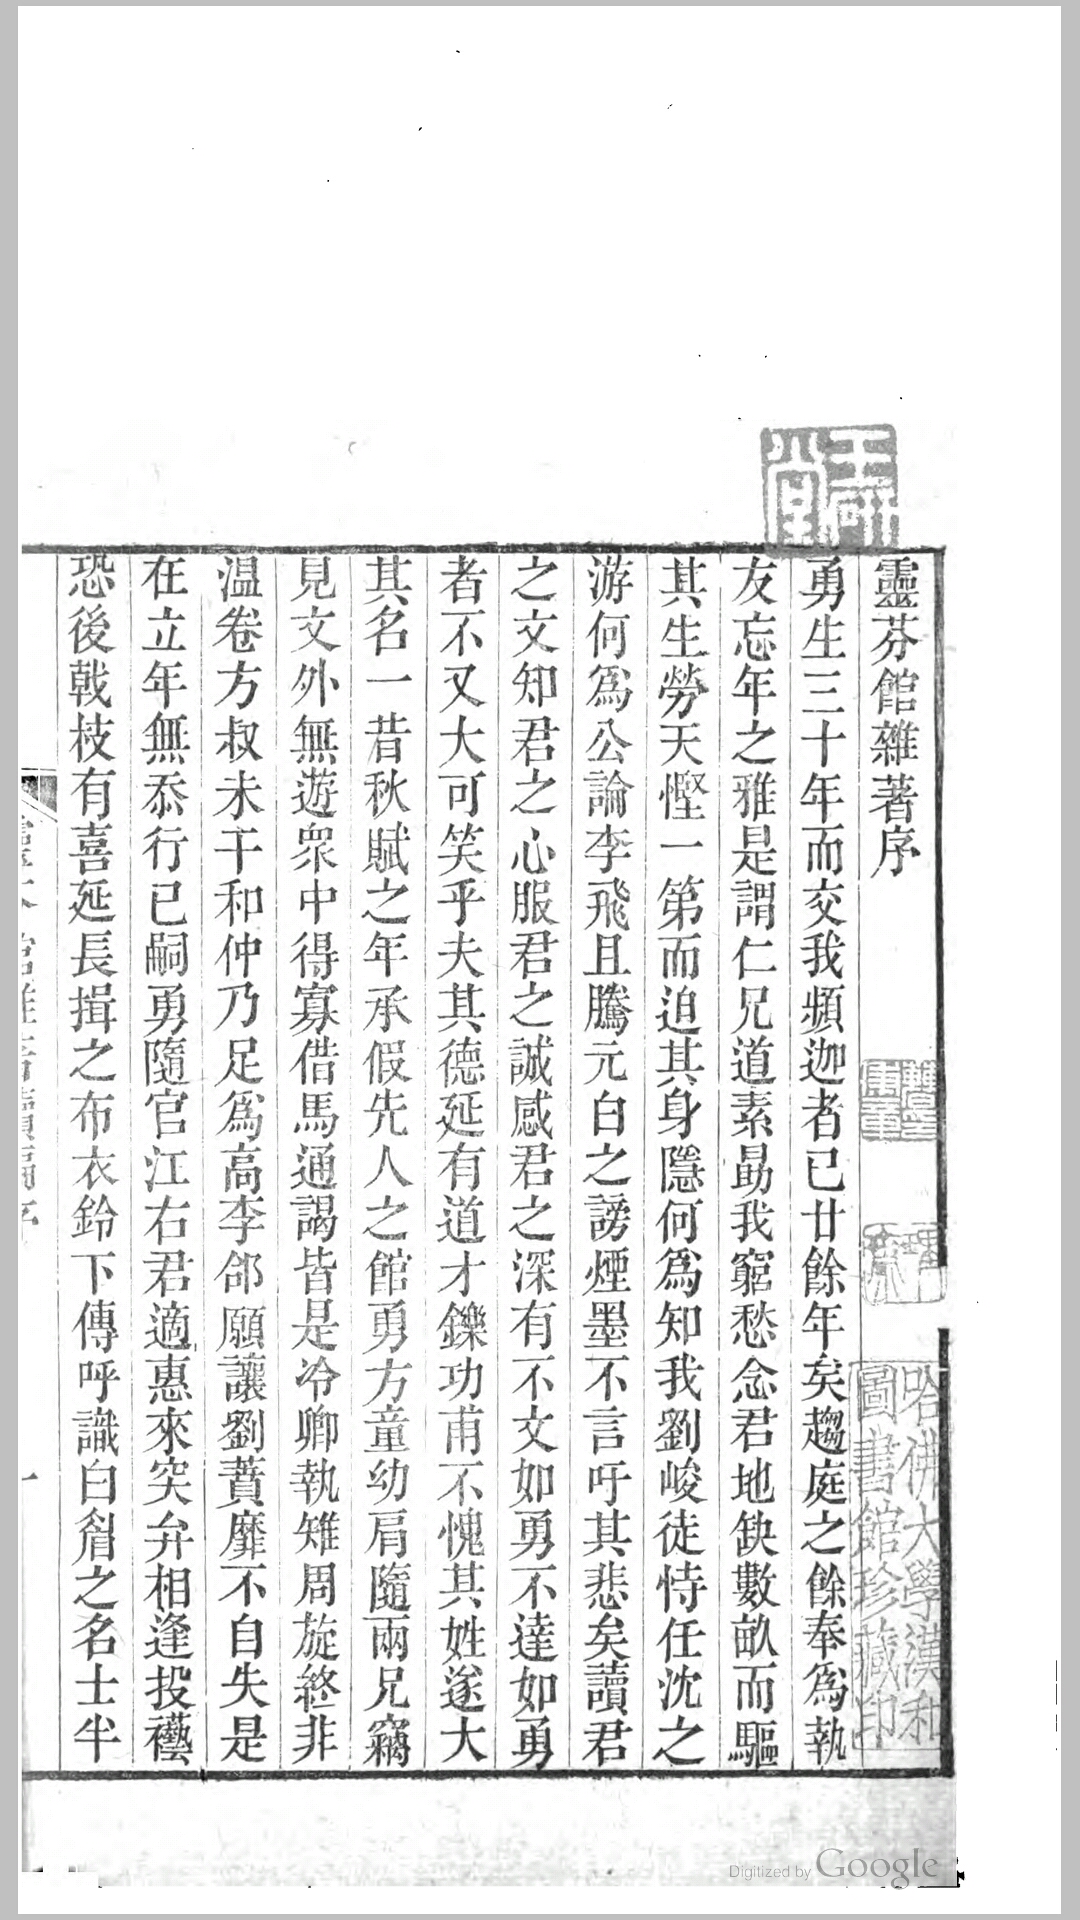 靈芬館雜著序
勇生三十年而交我頻迦者已廿餘年矣趨庭之餘奉爲執
友忘年之雅是謂仁兄道素勗我窮愁念君地缺數畝而驅
其生勞天慳一第而迫其身隱何爲知我劉峻徒恃任沈之
游何爲公論李飛且騰元白之謗煙墨不言吁其悲矣讀君
之文知君之心服君之誠感君之深有不文如勇不達如勇
者不又大可笑乎夫其德延有道才鑠功甫不愧其姓遂大
其名一昔秋賦之年承假先人之館勇方童幼肩隨兩兄竊
見文外無遊衆中得寡借馬通謁皆是冷卿執雉周旋終非
温卷方叔未干和仲乃足爲高李郃願讓劉蕡靡不自失是
在立年無忝行已嗣勇隨官江右君適惠來突弁相逢投藝
恐後戟枝有喜延長揖之布衣鈴下傳呼識白眉之名士半
一
哈佛大學漢和
圖書館珍藏印
Digitized by Google